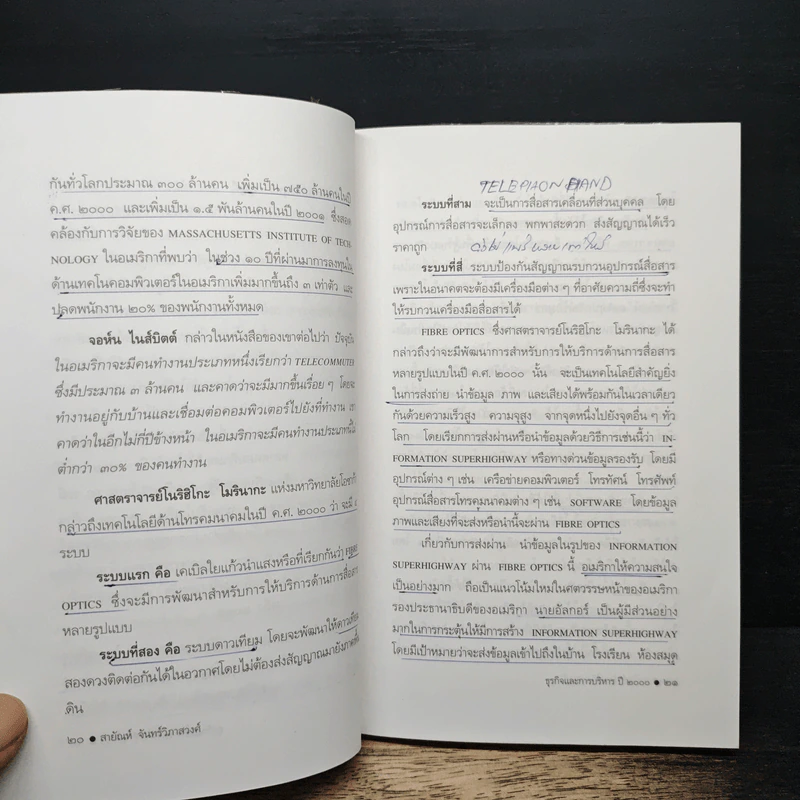 กันทั่วโลกประมาณ ๓๐๐ ล้านคน เพิ่มเป็น ๗๕๐ ล้านคนในปี
ค.ศ. ๒๐๐๐ และเพิ่มเป็น ๑.๕ พันล้านคนในปี ๒๐๐๑ ซึ่งสอด
คล้องกับการวิจัยของ MASSACHUSETTS INSTITUTE OF TECH-
NOLOGY ในอเมริกาที่พบว่า ในช่วง ๑๐ ปีที่ผ่านมาการลงทุนใน
ด้านเทคโนคอมพิวเตอร์ในอเมริกาเพิ่มมากขึ้นถึง ๓ เท่าตัว และ
ปลดพนักงาน ๒๐% ของพนักงานทั้งหมด
จอห์น ไนส์บิตต์ กล่าวในหนังสือของเขาต่อไปว่า ปัจจุบัน
ในอเมริกาจะมีคนทำงานประเภทหนึ่งเรียกว่า TELECOMMUTER
ซึ่งมีประมาณ ๓ ล้านคน และคาดว่าจะมีมากขึ้นเรื่อย ๆ โดยจะ
ทำงานอยู่กับบ้านและเชื่อมต่อคอมพิวเตอร์ไปยังที่ทำงาน เขา
คาดว่าในอีกไม่กี่ปีข้างหน้า ในอเมริกาจะมีคนทำงานประเภทนี้ไม่
ต่ำกว่า ๓๐% ของคนทำงาน
ศาสตราจารย์โนริฮิโกะ โมรินากะ แห่งมหาวิทยาลัยโอซาก้า
กล่าวถึงเทคโนโลยีด้านโทรคมนาคมในปี ค.ศ. ๒๐๐๐ ว่า จะมี ๔
ระบบ
ระบบแรก คือ เคเบิลใยแก้วนำแสงหรือที่เรียกกันว่า FIBRE
OPTICS ซึ่งจะมีการพัฒนาสำหรับการให้บริการด้านการสื่อสาร
หลายรูปแบบ
ระบบที่สอง คือ ระบบดาวเทียม โดยจะพัฒนาให้ดาวเทียม
สองดวงติดต่อกันได้ในอวกาศโดยไม่ต้องส่งสัญญาณมายังภาคพื้น
ดิน
๒๐ ● สายัณห์ จันทร์วิภาสวงศ์
TELEPHON HAND
ระบบที่สาม จะเป็นการสื่อสารเคลื่อนที่ส่วนบุคคล โดย
อุปกรณ์การสื่อสารจะเล็กลง พกพาสะดวก ส่งสัญญาณได้เร็ว
ราคาถูก
ระบบที่สี่ ระบบป้องกันสัญญาณรบกวนอุปกรณ์สื่อสาร
เพราะในอนาคตจะต้องมีเครื่องมือต่าง ๆ ที่อาศัยความถี่ซึ่งจะทำ
ให้รบกวนเครื่องมือสื่อสารได้
FIBRE OPTICS ซึ่งศาสตราจารย์โนริฮิโกะ โมรินากะ ได้
กล่าวถึงว่าจะมีพัฒนาการสำหรับการให้บริการด้านการสื่อสาร
หลายรูปแบบในปี ค.ศ. ๒๐๐๐ นั้น จะเป็นเทคโนโลยีสำคัญยิ่ง
ในการส่งถ่าย นำข้อมูล ภาพ และเสียงได้พร้อมกันในเวลาเดียว
กันด้วยความเร็วสูง ความจุสูง จากจุดหนึ่งไปยังจุดอื่น ๆ ทั่ว
โลก โดยเรียกการส่งผ่านหรือนำข้อมูลด้วยวิธีการเช่นนี้ว่า IN-
FORMATION SUPERHIGHWAY หรือทางด่วนข้อมูลรองรับ โดยมี
อุปกรณ์ต่าง ๆ เช่น เครือข่ายคอมพิวเตอร์ โทรทัศน์ โทรศัพท์
อุปกรณ์สื่อสารโทรคมนาคมต่าง ๆ เช่น SOFTWARE โดยข้อมูล
ภาพและเสียงที่จะส่งหรือนำนี้จะผ่าน FIBRE OPTICS
เกี่ยวกับการส่งผ่าน นำข้อมูลในรูปของ INFORMATION
SUPERHIGHWAY ผ่าน FIBRE OPTICS นี้ อเมริกาให้ความสนใจ
เป็นอย่างมาก ถือเป็นแนวโน้มใหม่ในศตวรรษหน้าของอเมริกา
รองประธานาธิบดีของอเมริกา นายอัลกอร์ เป็นผู้มีส่วนอย่าง
มากในการกระตุ้นให้มีการสร้าง INFORMATION SUPERHIGHWAY
โดยมีเป้าหมายว่าจะส่งข้อมูลเข้าไปถึงในบ้าน โรงเรียน ห้องสมุด
ธุรกิจและการบริหาร ปี ๒๐๐๐ ● ๒๑